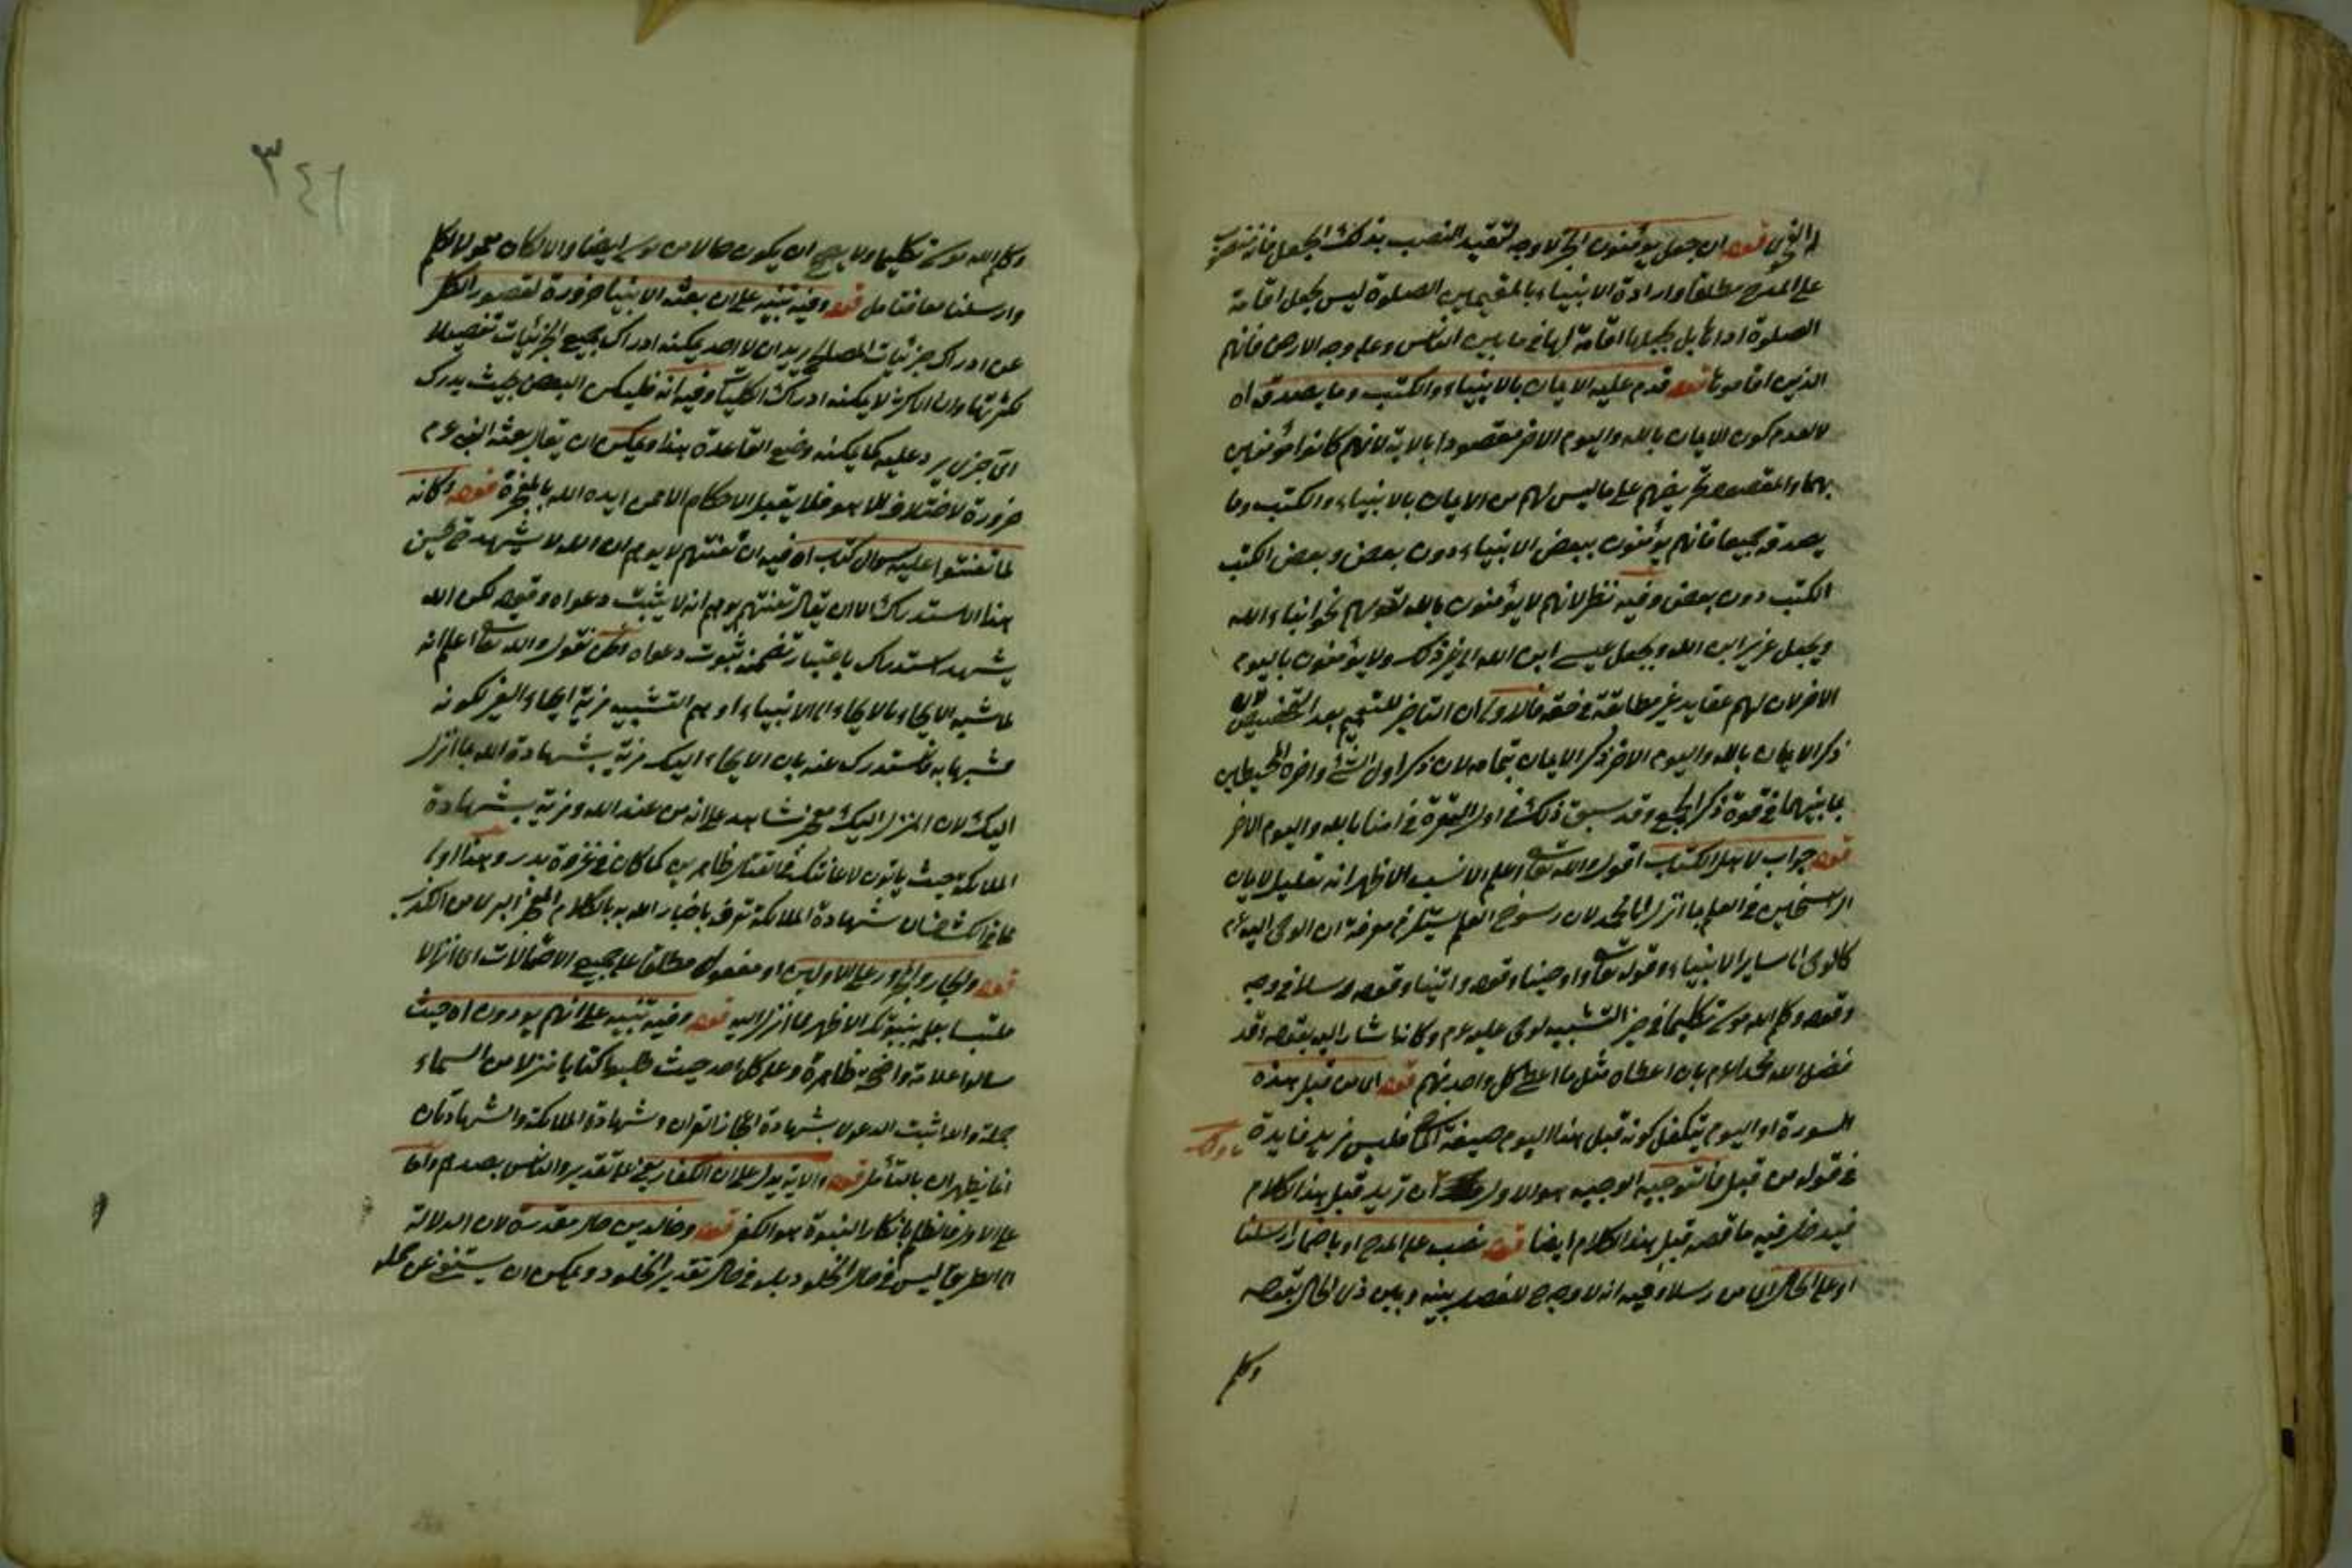 قوله ان جعل يؤمنون الخ لا وجه لتقييد النصب بذلك الجعل فانه
على المدح مطلقا وارادة الانبياء بالمقيمين الصلوة ليس بجعل اقامة
الصلوة اداءها بل بجعلها اقامة لها فيما بين الناس وعلى وجه الارض فانهم
الذين اقاموها قوله قدم عليه الايمان بالانبياء والكتب وما يصدقه اه
لا لعدم كون الايمان بالله واليوم الاخر مقصودا بالاية لانهم كانوا مؤمنين
بهما والمقصود تحريضهم على ما ليس لهم من الايمان بالانبياء والكتب وما
يصدقه جميعا فانهم يؤمنون ببعض الانبياء دون بعض وبعض الكتب
الكتب دون بعض وفيه نظر لانهم لا يؤمنون بالله لقولهم نحن ابناء الله
وبجعل عزير ابن الله وبجعل عيسى ابن الله الى غير ذلك ولا يؤمنون باليوم
الاخر لان لهم عقايد غير مطابقة في حقه فالاولى ان التاخير للتعميم بعد التخصيص
ذكر الايمان بالله واليوم الاخر ذكر الايمان بتمامه لان ذكر اول الشئ واخره المحيطين
بما بينهما في قوة ذكر الجميع وقد سبق ذلك في اول البقرة في امنا بالله واليوم الاخر
قوله جواب لاهل الكتاب اقول والله تعالى اعلم الانسب الاظهر انه تعليل لايمان
الراسخين في العلم بما انزل الى محمد لان رسوخ العلم يستلزم معرفة ان الوحي اليه عم
كالوحي الى سائر الانبياء وقوله تعالى واوحينا وقوله واتينا وقوله ورسلا في وجه
وقوله وكلم الله موسى تكليما في حيز التشبيه لوحي عليه عم وكانه اشار اليه بقوله وقد
فضل الله محمدا عم بان اعطاه مثل ما اعطى كل واحد منهم قوله اي من قبل هذه
السورة او اليوم يتكفل كونه قبل هذا اليوم صيغة الماضي فليس مزيد فايدة
في قوله من قبل فالتوجيه الوجيه هو الاول ان تريد قبل هذا الكلام
فيدخل فيه ما قصه قبل هذا الكلام ايضا قوله نصب على المدح او باضمار ارسلنا
او على الحال اي من رسلا وفيه انه لا وجه للفصل بينه وبين ذي الحال بقوله
وكلم
وكلم الله موسى تكليما ولا يصح ان يكون حالا من موسى ايضا والا لكان معمولا لكلم
وارسلنا معا فتامل قوله وفيه تنبيه على ان بعثة الانبياء ضرورة لقصور الكل
عن ادراك جزئيات المصالح يريد ان لا احد يمكنه ادراك جميع الجزئيات تفصيلا
لكثرتها وان الاكثر لا يمكنه ادراك الكليات وفيه انه فليكن البعض بحيث يدرك
اي جزئي يرد عليه كما يمكنه وضع القاعدة هذا ويمكن ان يقال بعثة النبي عم
ضرورة لاختلاف الاهواء فلا يقبل الاحكام الا ممن ايده الله بالمعجزة قوله وكانه
لما تعنتوا عليه بسوال كتاب اه فيه ان تعنتهم لا يوهم ان الله لا يشهد حتى يحسن
هذا الاستدراك الا ان يقال تعنتهم يوهم انه لا يثبت دعواه وقوله لكن الله
يشهد استدراك باعتبار تضمنه ثبوت دعواه ونحن نقول والله تعالى اعلم انه
لما شبه الايحاء بالايحاء الى الانبياء اوهم التشبيه مزية ايحاء الغير لكونه
مشبها به فاستدرك عنه بان الايحاء اليك مزية بشهادة الله بما انزل
اليك لان المنزل اليك معجز شاهد على انه من عند الله ومزية بشهادة
الملائكة حيث ياتون لاعانتك في القتال ظاهرين كما كان في غزوة بدر وهذا اولى
مما في الكشاف ان شهادة الملائكة تعرف باخبار الله به بالكلام المعجز المبرا من الكذب
قوله والجار والمجرور على الاولين او مفعول مطلقا على جميع الاحتمالات اي انزالا
ملتبسا بعلمه بنبوتك الاظهر لما انزل اليه قوله وفيه تنبيه على انهم يودون اه حيث
سالوا علامة واضحة ظاهرة وعلى كل احد حيث طلبوا كتابا منزلا من السماء
جملة وانما اثبت الدعوى بشهادة اعجاز القران وشهادة الملائكة والشهادتان
انما يظهران بالتأمل قوله والاية يدل على ان الكفار يعني على تقدير والناس بصدهم واما
على الاول فالظلم بانكار النبوة هو الكفر قوله وخالدين حال مقدرة لان الدلالة
الى الطريق ليس في حال الخلود بل في حال تقدير الخلود ويمكن ان يستغنى عن جعله
٣٤٦